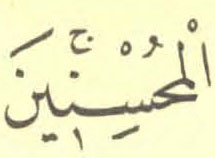 الْمُحْسِنِينَۚ